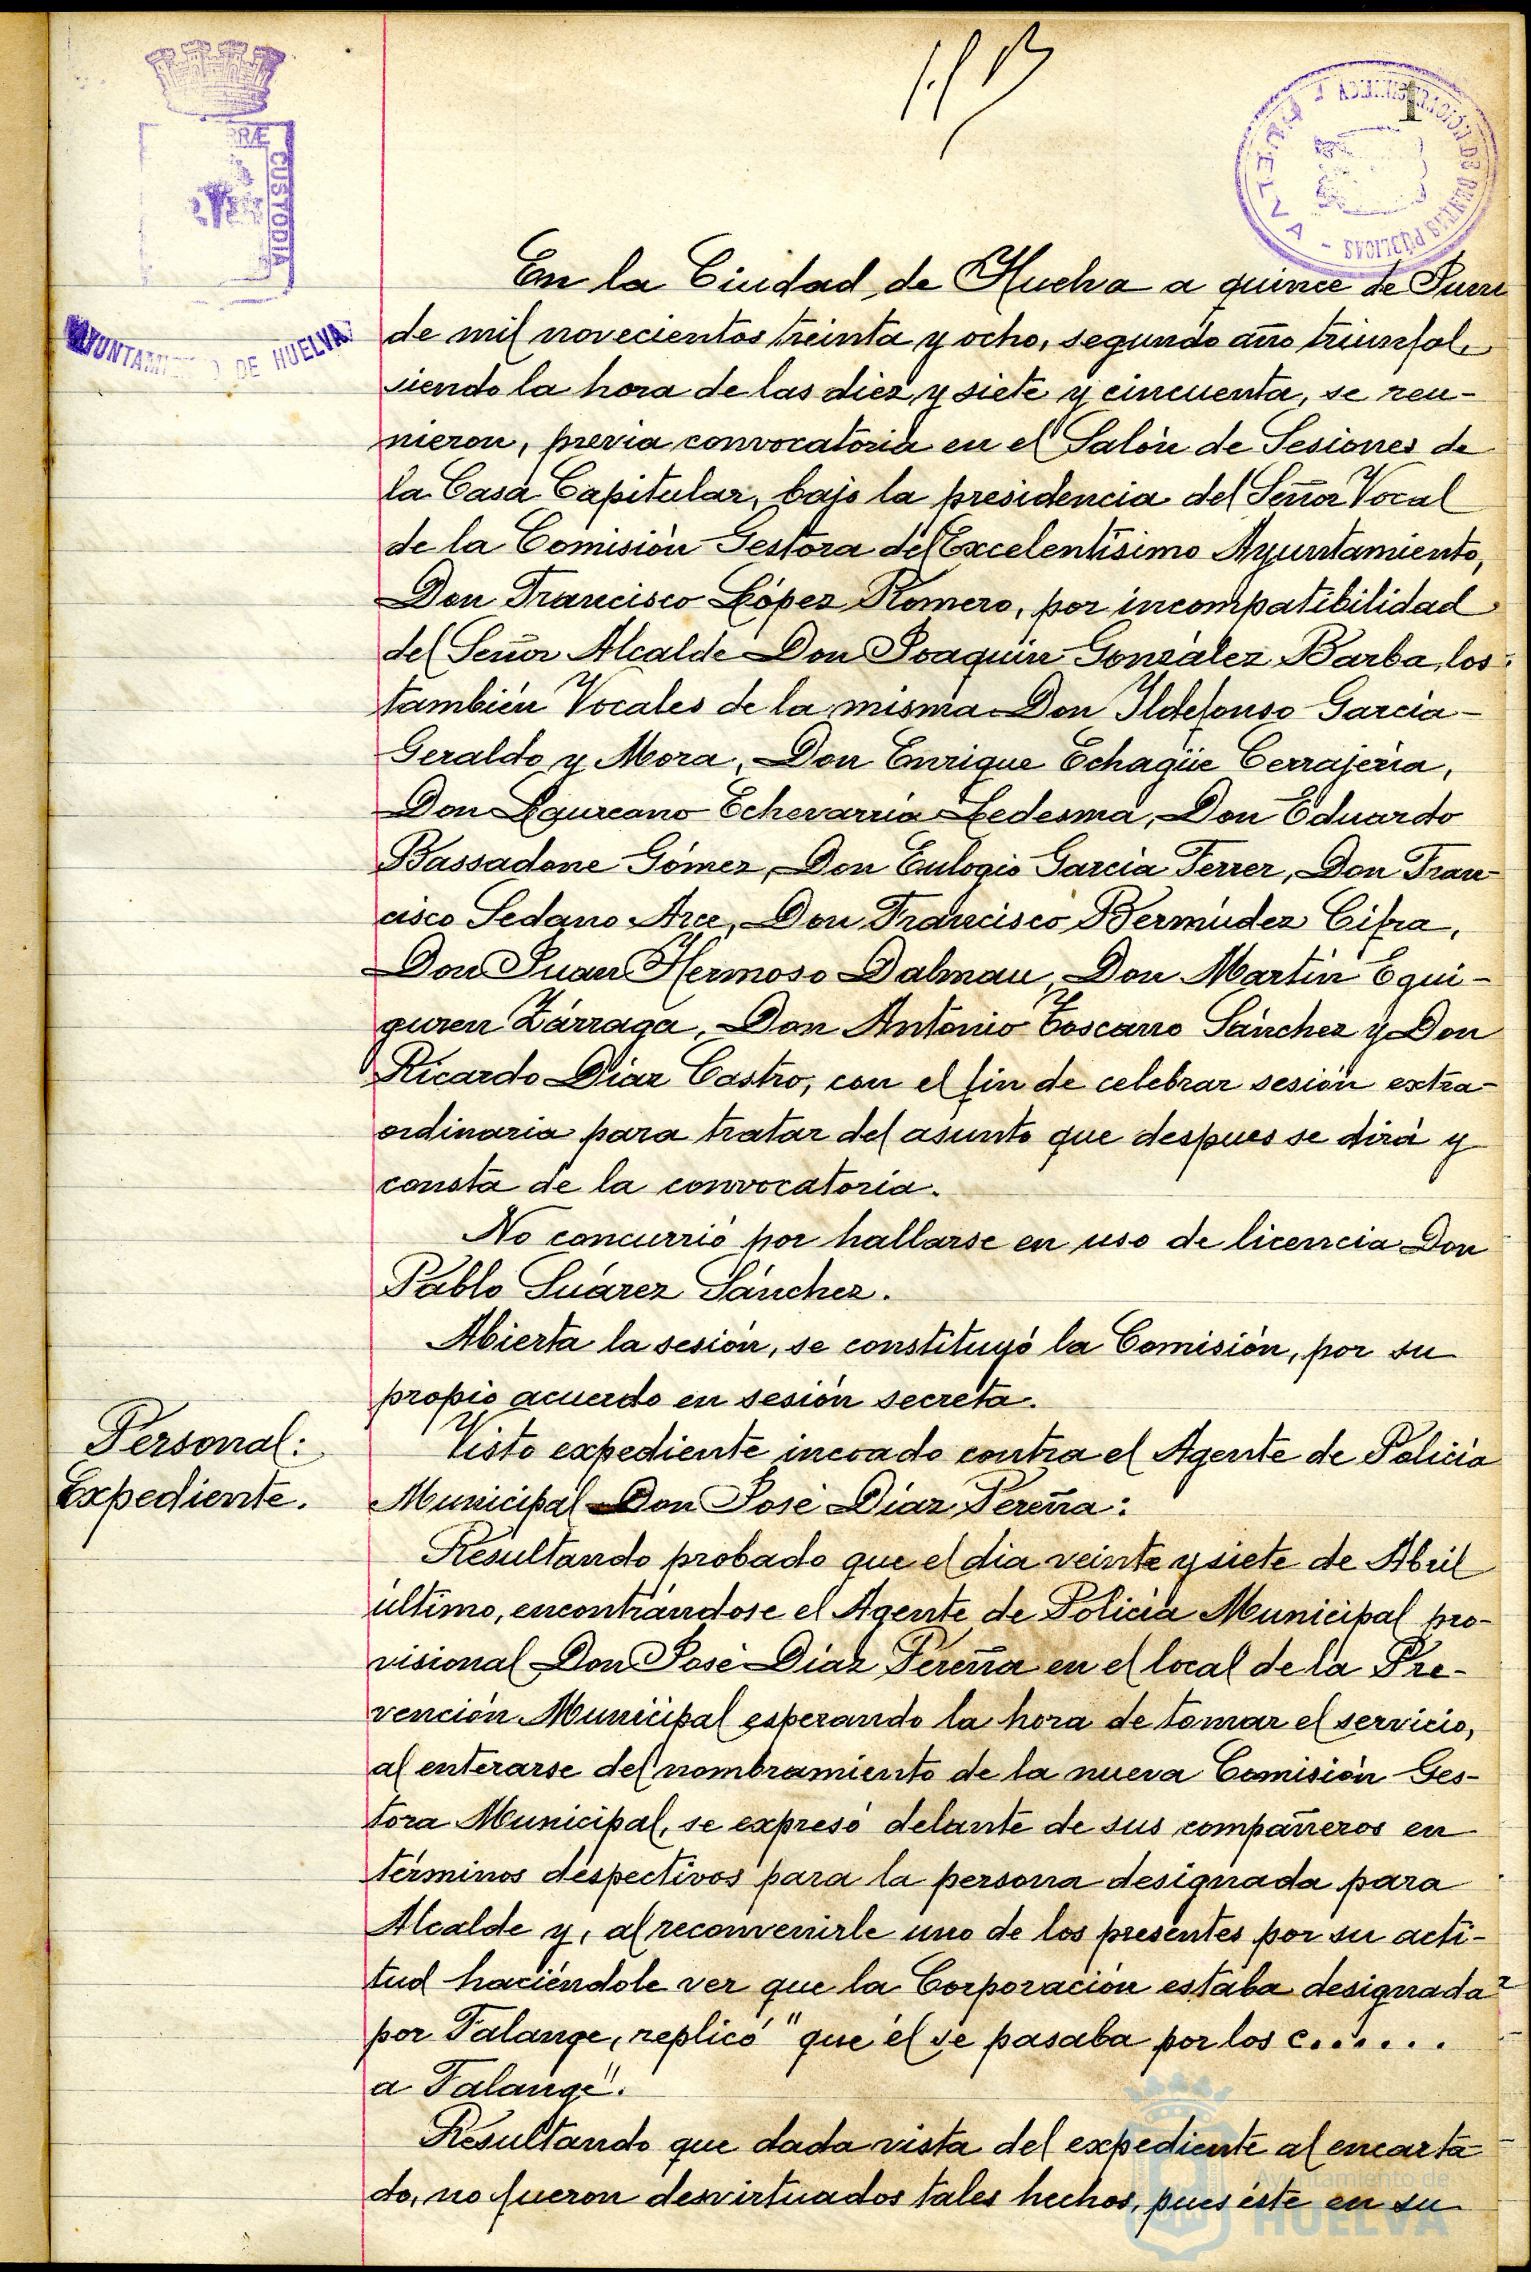 1
RÆ
CUSTODIA
AYUNTAMI DE HUELVA
HUELVA
En la Ciudad de Huelva a quince de Junio
de mil novecientos treinta y ocho, segundo año triunfal,
siendo la hora de las diez y siete y cincuenta, se reu-
nieron, previa convocatoria en el Salón de Sesiones de
la Casa Capitular, bajo la presidencia del Señor Vocal
de la Comisión Gestora del Excelentísimo Ayuntamiento,
Don Francisco López Romero, por incompatibilidad
del Señor Alcalde Don Joaquín González Barba, los
también Vocales de la misma Don Ildefonso García-
Geraldo y Mora, Don Enrique Echagüe Cerrajería,
Don Laureano Echevarría Ledesma, Don Eduardo
Bassadone Gómez, Don Eulogio García Ferrer, Don Fran-
cisco Sedano Arce, Don Francisco Bermúdez Cifra,
Don Juan Hermoso Dalmau, Don Martín Egui-
guren Zárraga, Don Antonio Toscano Sánchez y Don
Ricardo Díaz Castro, con el fin de celebrar sesión extra-
ordinaria para tratar del asunto que despues se dirá y
consta de la convocatoria.
No concurrió por hallarse en uso de licencia Don
Pablo Suárez Sánchez.
Abierta la sesión, se constituyó la Comisión, por su
propio acuerdo en sesión secreta.
Personal:
Expediente.
Visto expediente incoado contra el Agente de Policía
Municipal Don José Díaz Pereña:
Resultando probado que el día veinte y siete de Abril
último, encontrándose el Agente de Policía Municipal pro-
visional Don José Díaz Pereña en el local de la Pre-
vención Municipal esperando la hora de tomar el servicio,
al enterarse del nombramiento de la nueva Comisión Ges-
tora Municipal, se expresó delante de sus compañeros en
términos despectivos para la persona designada para
Alcalde y, al reconvenirle uno de los presentes por su acti-
tud haciéndole ver que la Corporación estaba designada
por Falange, replicó "que él se pasaba por los c......
a Falange".
Resultando que dada vista del expediente al encarta-
do, no fueron desvirtuados tales hechos, pues éste en su
Ayuntamiento de
HUELVA